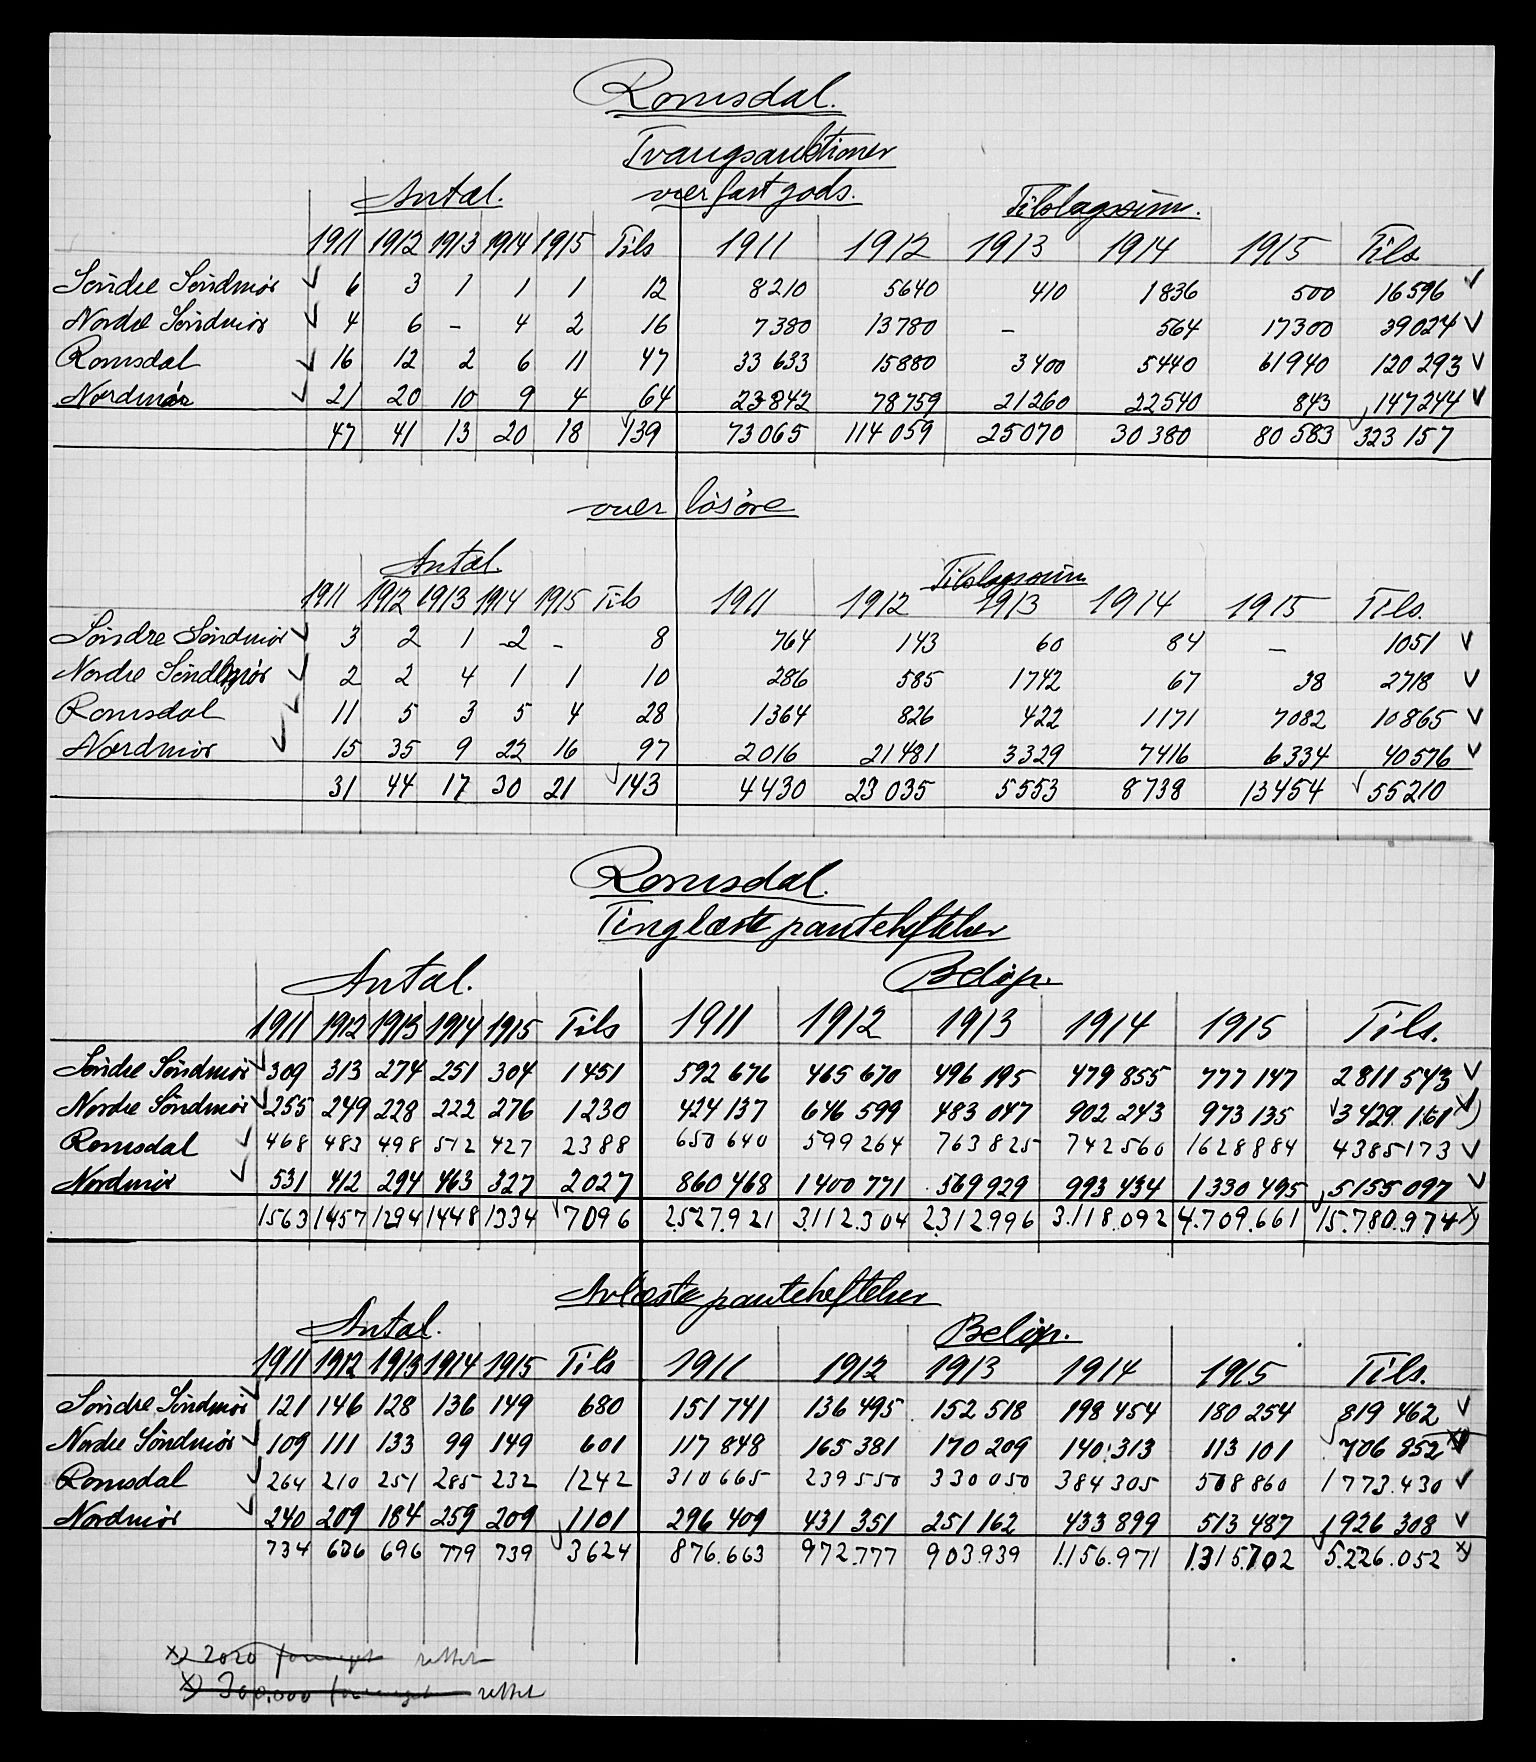 Romsdal.
Tvangsauktioner
Antal. over fast gods. Tilslagssum.
1911 1912 1913 1914 1915 Tils 1911 1912 1913 1914 1915 Tils.
Søndre Søndmør ✓ 6 3 1 1 1 12 8210 5640 410 1836 500 16596 ✓
Nordre Søndmør ✓ 4 6 - 4 2 16 7380 13780 - 564 17300 39024 ✓
Romsdal ✓ 16 12 2 6 11 47 33 633 15880 3400 5440 61940 120 293 ✓
Nordmør ✓ 21 20 10 9 4 64 23842 78759 21260 22540 843 147244 ✓
47 41 13 20 18 139 73065 114059 25070 30380 80583 323157
over løsøre
Antal. Tilslagssum
1911 1912 1913 1914 1915 Tils 1911 1912 1913 1914 1915 Tils.
Søndre Søndmør ✓ 3 2 1 2 - 8 764 143 60 84 - 1051 ✓
Nordre Søndmør ✓ 2 2 4 1 1 10 286 585 1742 67 38 2718 ✓
Romsdal ✓ 11 5 3 5 4 28 1364 826 422 1171 7082 10865 ✓
Nordmør ✓ 15 35 9 22 16 97 2016 21481 3329 7416 6334 40576 ✓
31 44 17 30 21 143 4430 23035 5553 8738 13454 55210
Romsdal.
Tinglæste pantehæftelser
Antal. Beløp.
1911 1912 1913 1914 1915 Tils 1911 1912 1913 1914 1915 Tils.
Søndre Søndmør ✓ 309 313 274 251 304 1451 592 676 465 670 496 195 479 855 777 147 2811 543 ✓
Nordre Søndmør ✓ 255 249 228 222 276 1230 424 137 646 599 483 047 902 243 973 135 3429 161 x)
Romsdal ✓ 468 483 498 512 427 2388 650 640 599 264 763 825 742 560 1628 884 4385173 ✓
Nordmør ✓ 531 412 294 463 327 2027 860 468 1400 771 569 929 993 434 1330 495 5155 097 ✓
1563 1457 1294 1448 1334 7096 2527.921 3.112.304 2312.996 3.118.092 4.709.661 15.780.974 x)
Avlæste pantehæftelser
Antal. Beløp.
1911 1912 1913 1914 1915 Tils 1911 1912 1913 1914 1915 Tils.
Søndre Søndmør ✓ 121 146 128 136 149 680 151 741 136 495 152 518 198 454 180 254 819 462 ✓
Nordre Søndmør ✓ 109 111 133 99 149 601 117 848 165 381 170 209 140 313 113 101 706 852 x)
Romsdal ✓ 264 210 251 285 232 1242 310 665 239 550 330 050 384 305 508 860 1773.430 ✓
Nordmør ✓ 240 209 184 259 209 1101 296 409 431 351 251 162 433 899 513 487 1926 308 ✓
734 676 696 779 739 3624 876.663 972.777 903.939 1.156.971 1.315.702 5.226.052 x)
x) 2020 rettet
x) 300,000 rettet